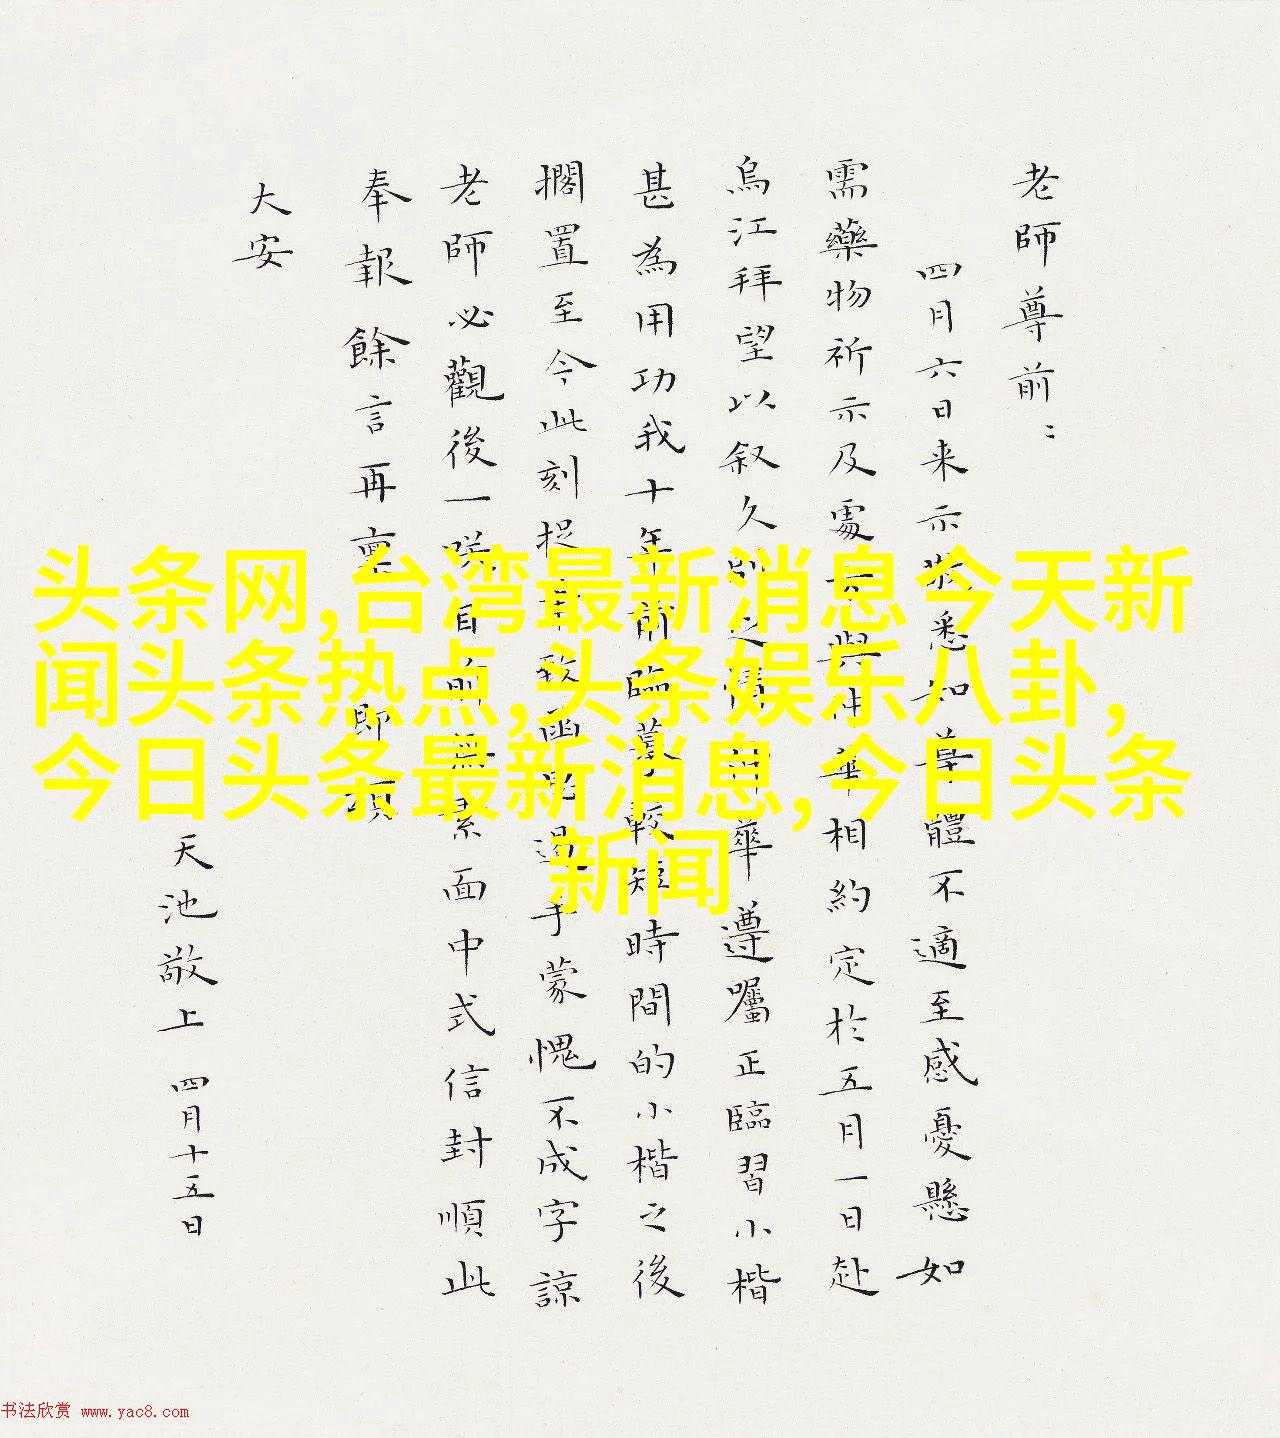 老師尊前：
四月六日来示敬悉知尊體不適至感憂懸如
需藥物祈示及處與仲華相約定於五月一日赴
烏江拜望以叙久別之情仲華遵囑正臨習小楷
甚為用功我十年前臨摹較短時間的小楷之後
擱置至今此刻捉筆致函手蒙愧不成字諒
老師必觀後一咲目前無素面中式信封順此
奉報餘言再稟即頌
大安
天池敬上 四月十五日
头条网,台湾最新消息今天新
闻头条热点,头条娱乐八卦,
今日头条最新消息,今日头条
新闻
书法欣赏 www.yac8.com